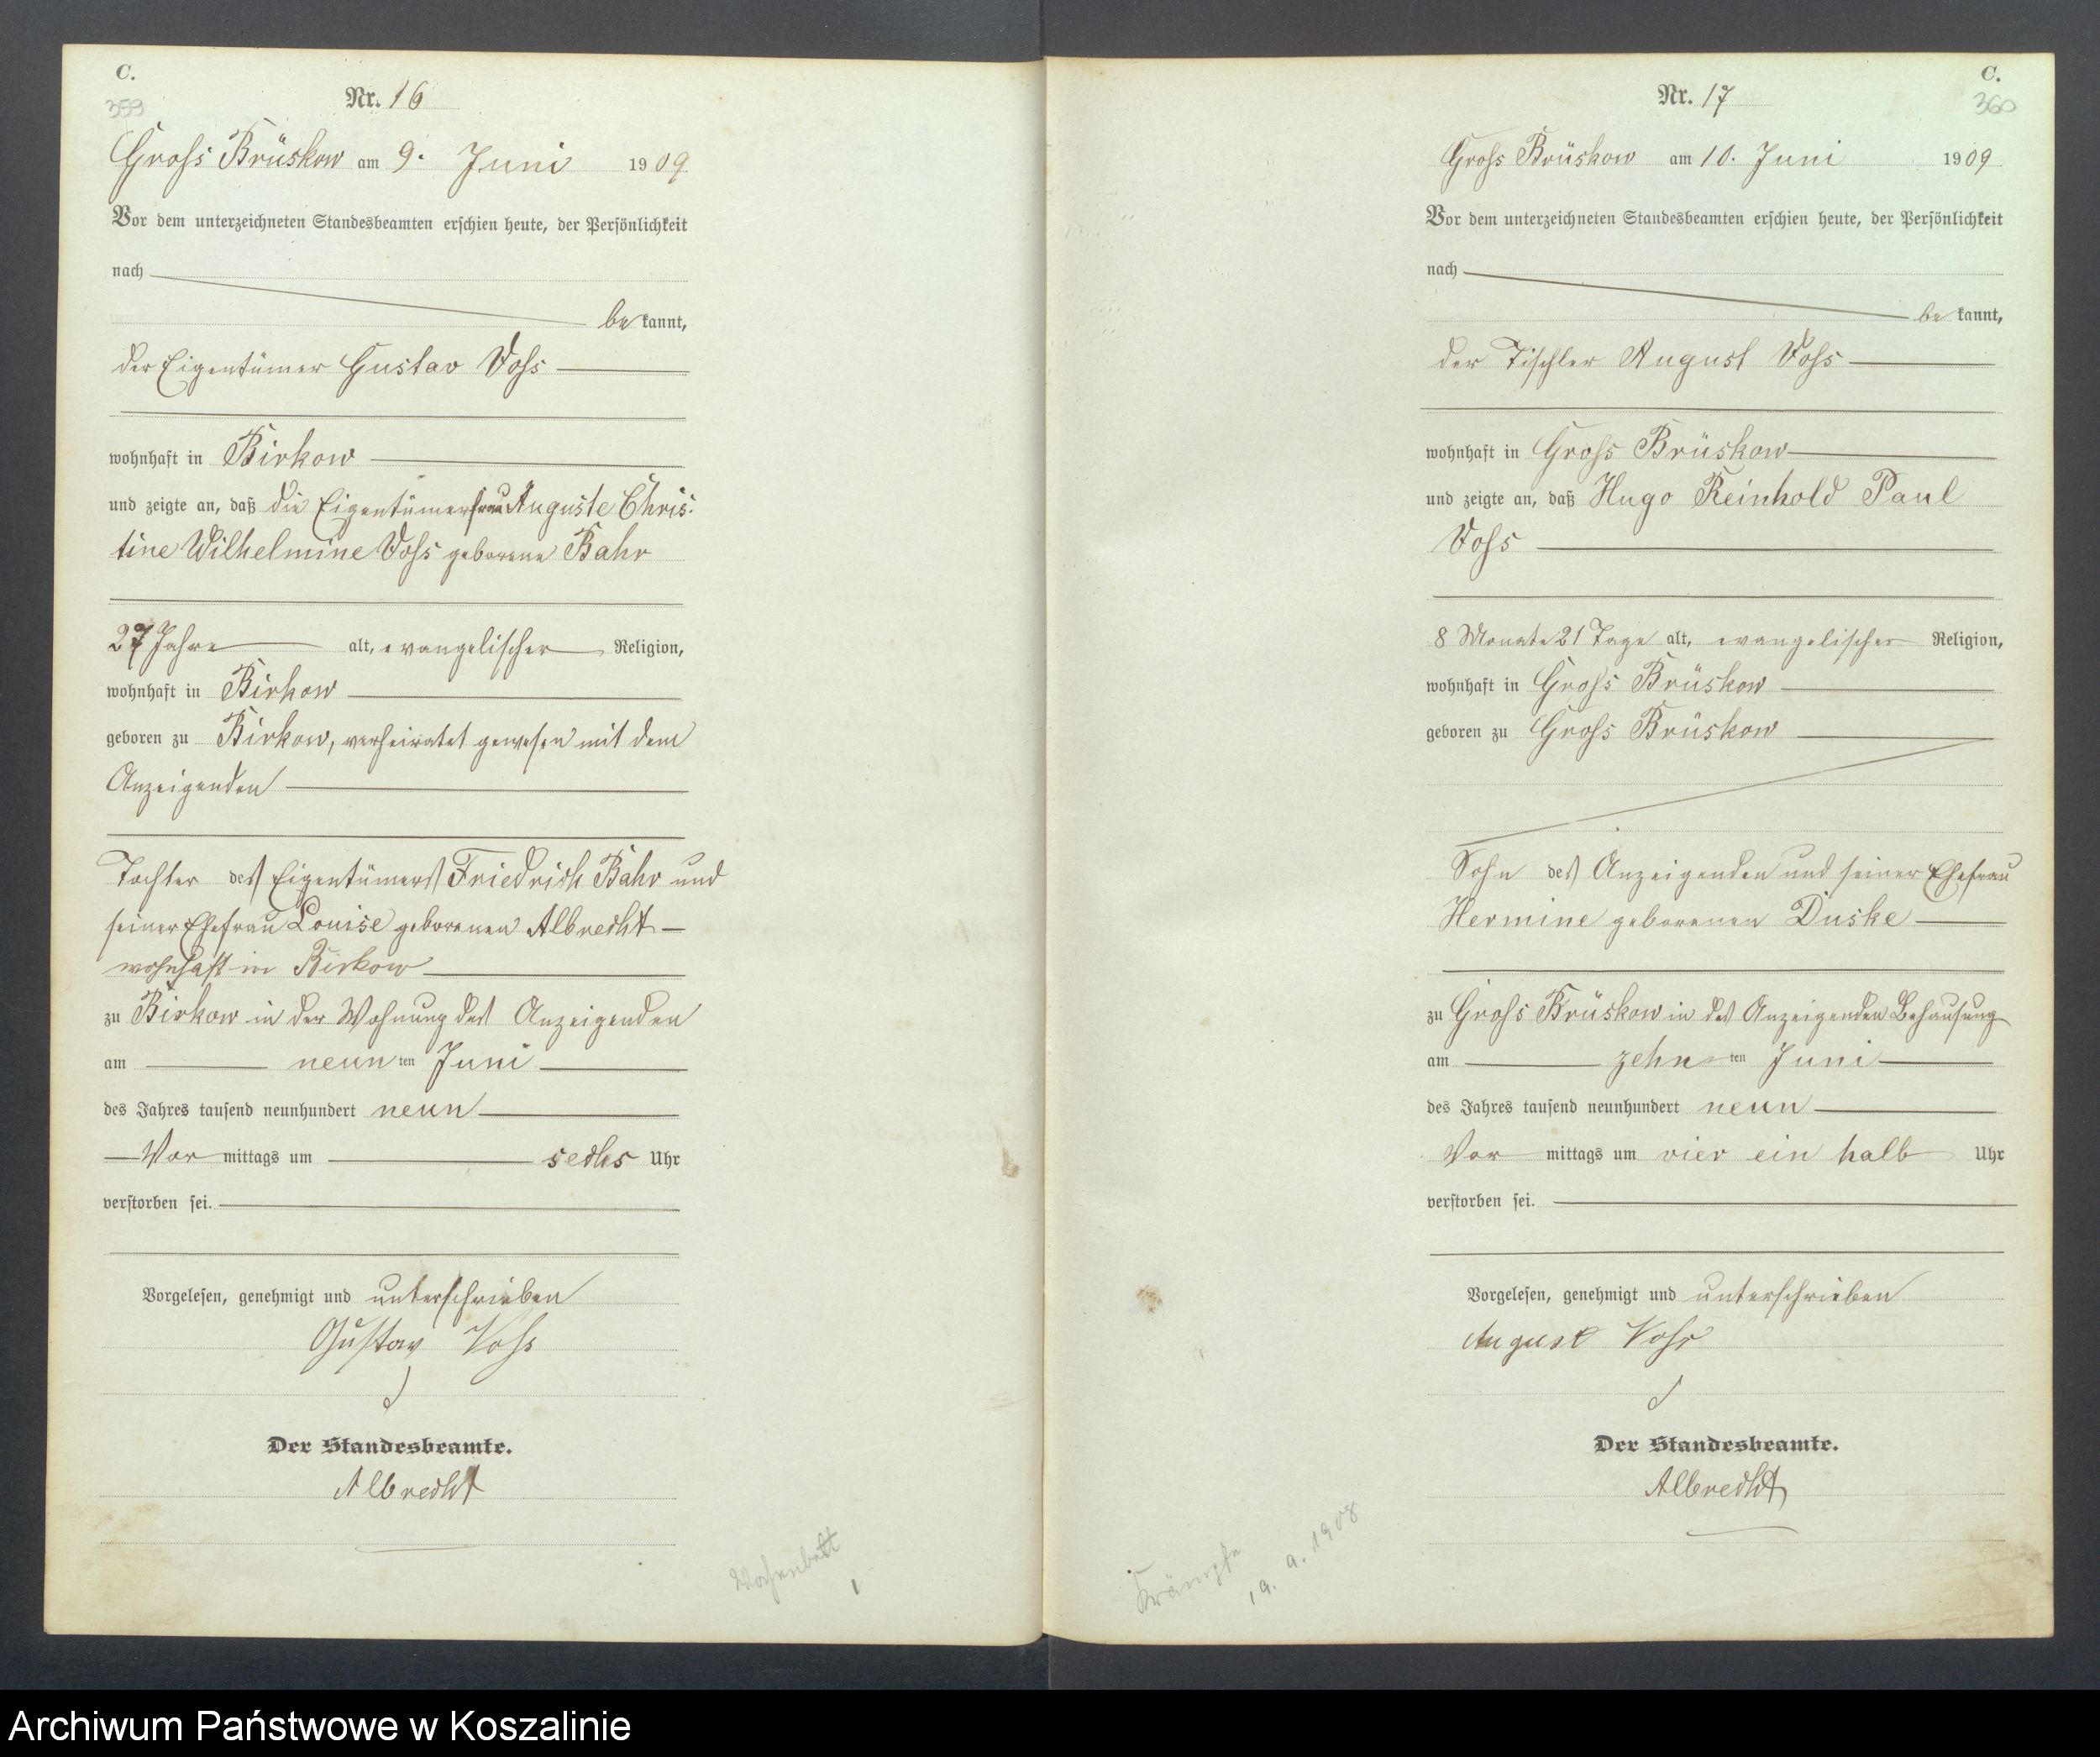 C.
359
Nr. 16
Gross Brüskow am 9. Juni 1909
Vor dem unterzeichneten Standesbeamten erschien heute, der Persönlichkeit
nach
bekannt,
der Eigentümer Gustav Voss
wohnhaft in Birkow
und zeigte an, daß die Eigentümerfrau Auguste Chris:
tine Wilhelmine Voss geborene Bahr
27 Jahre alt, evangelischer Religion,
wohnhaft in Birkow
geboren zu Birkow, verheiratet gewesen mit dem
Anzeigenden
Tochter des Eigentümers Friedrich Bahr und
seiner Ehefrau Louise geborenen Albrecht
wohnhaft in Birkow
zu Birkow in der Wohnung des Anzeigenden
am neunten Juni
des Jahres tausend neunhundert neun
Vormittags um sechs Uhr
verstorben sei.
Vorgelesen, genehmigt und unterschrieben
Gustav Voss
Der Standesbeamte.
Albrecht
Wochenbett
1
C.
360
Nr. 17
Gross Brüskow am 10. Juni 1909
Vor dem unterzeichneten Standesbeamten erschien heute, der Persönlichkeit
nach
bekannt,
der Tischler August Voss
wohnhaft in Gross Brüskow
und zeigte an, daß Hugo Reinhold Paul
Voss
8 Monate 21 Tage alt, evangelischer Religion,
wohnhaft in Gross Brüskow
geboren zu Gross Brüskow
Sohn des Anzeigenden und seiner Ehefrau
Hermine geborenen Duske
zu Gross Brüskow in des Anzeigenden Behausung
am zehnten Juni
des Jahres tausend neunhundert neun
Vormittags um vier ein halb Uhr
verstorben sei.
Vorgelesen, genehmigt und unterschrieben
August Voss
Der Standesbeamte.
Albrecht
Krämpfe
9. 1908
Archiwum Państwowe w Koszalinie